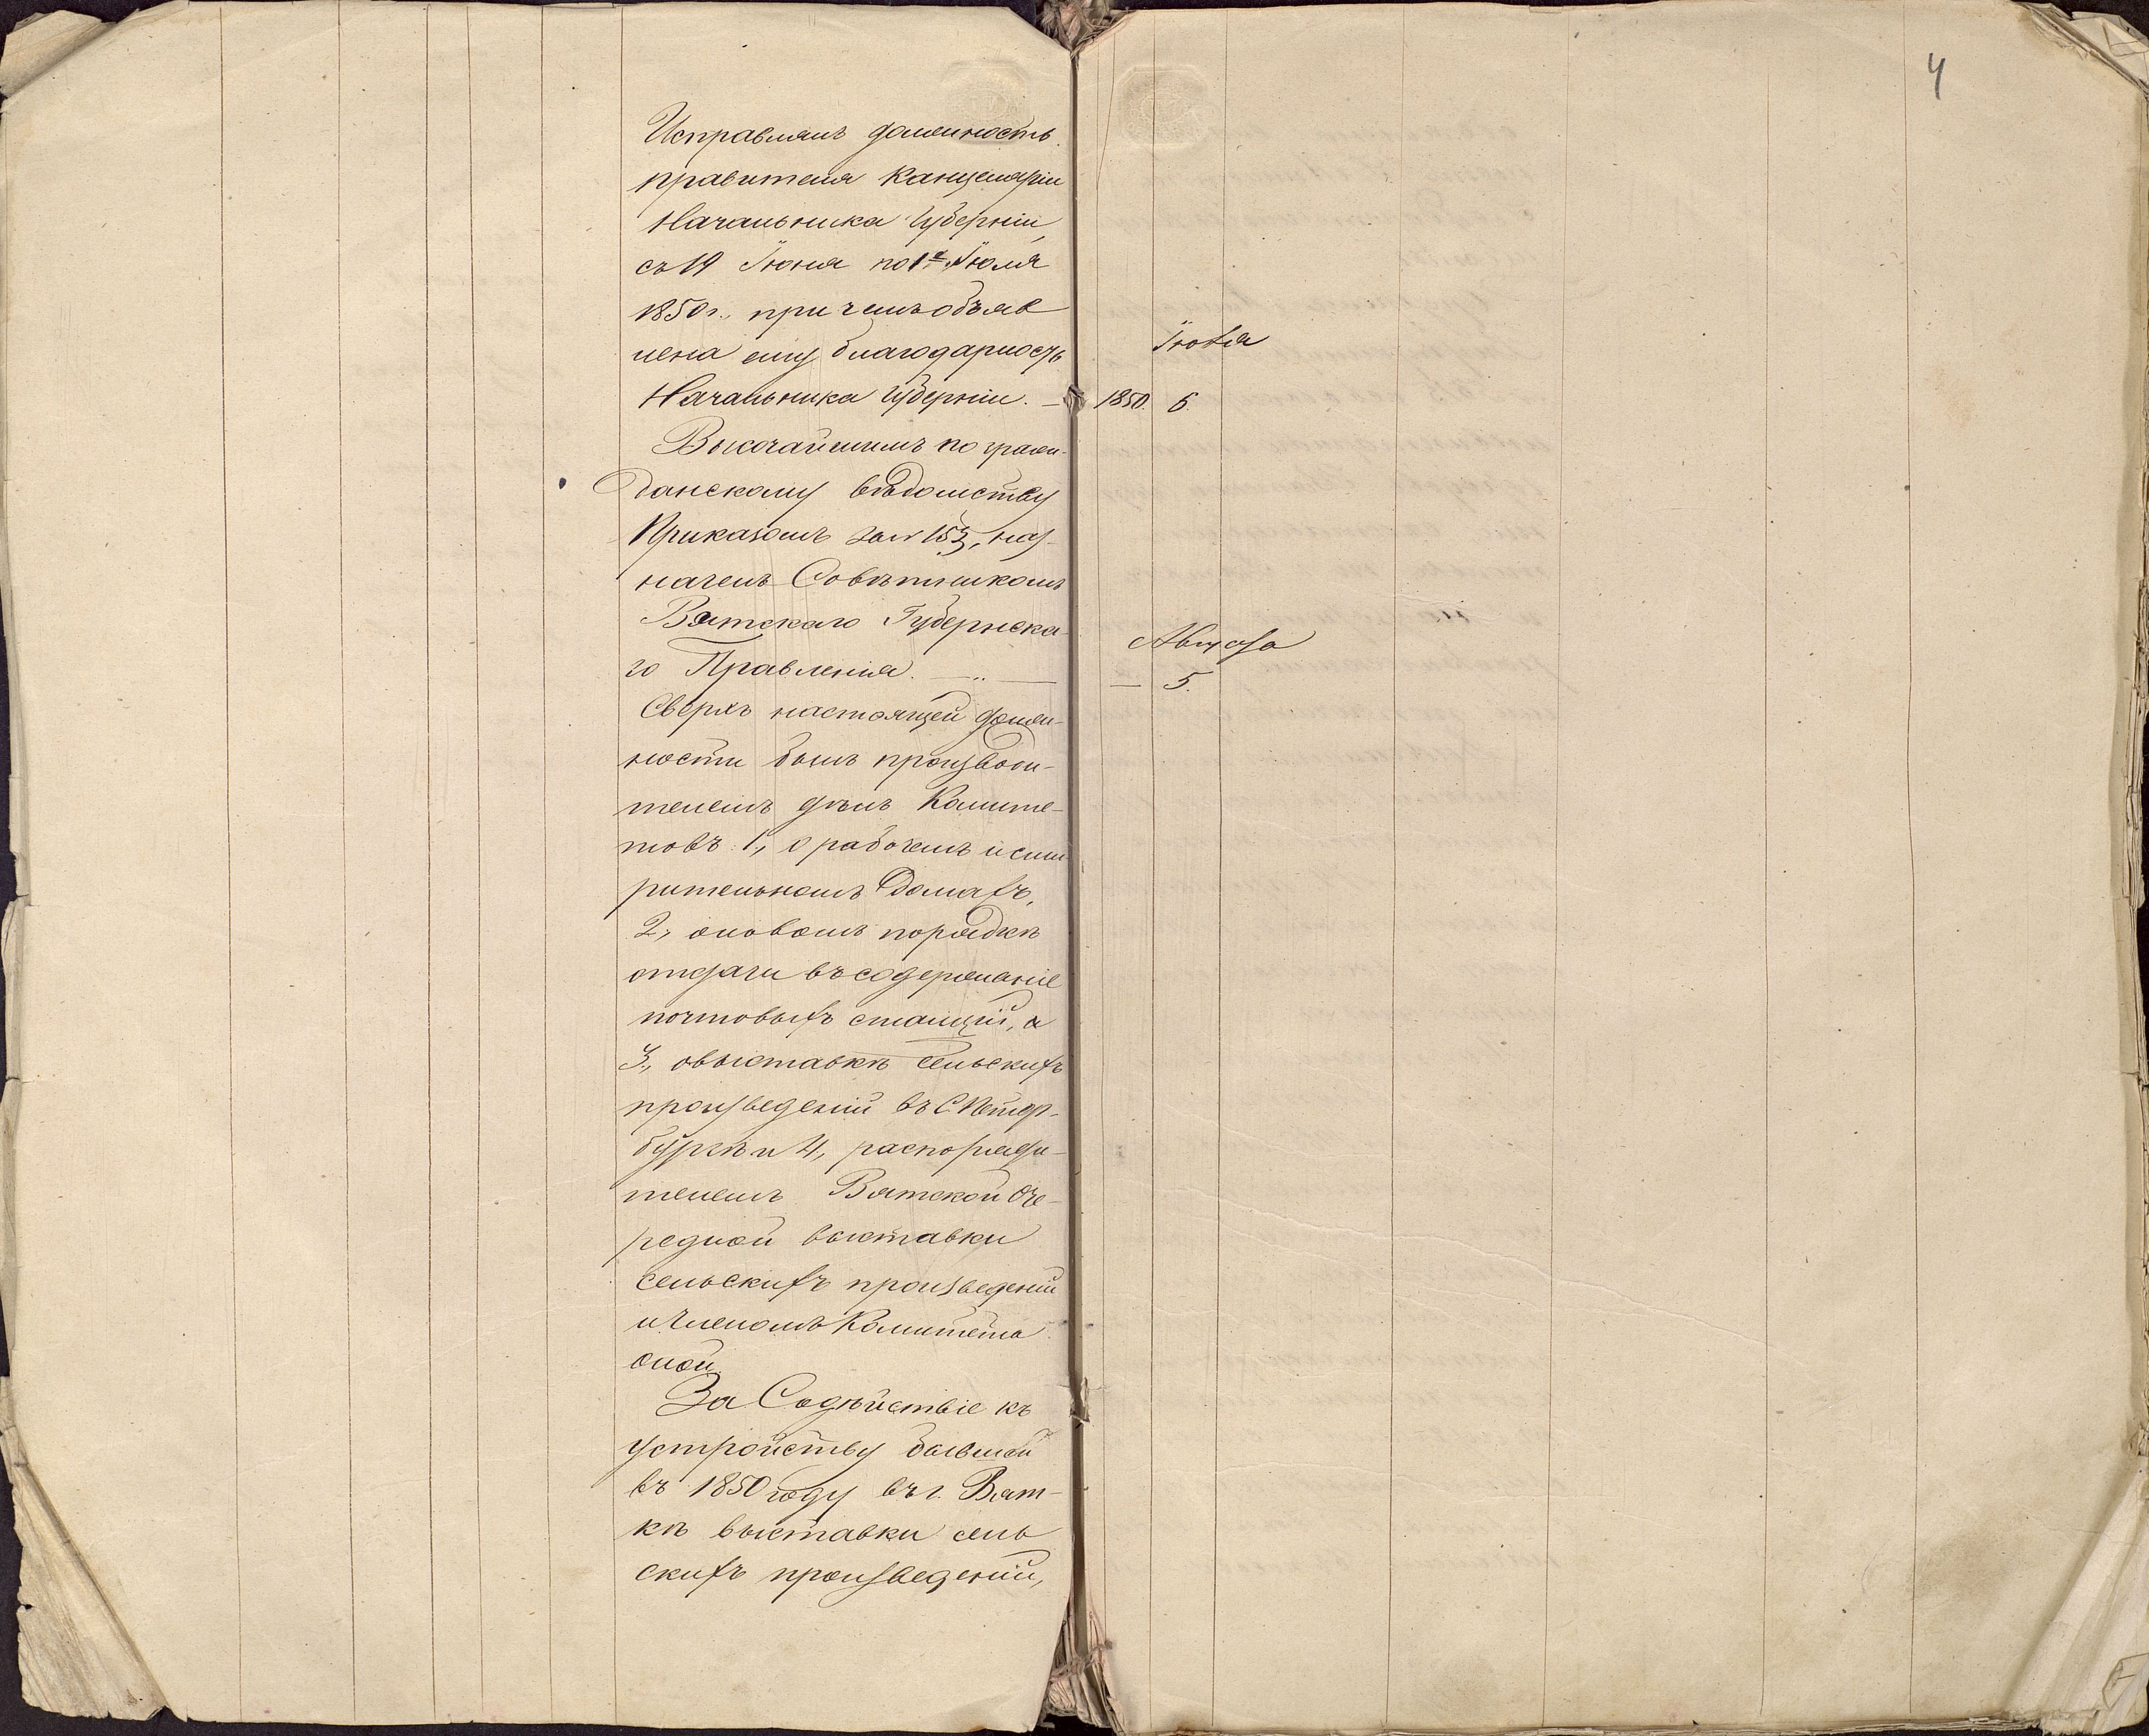 Исправлялъ должность
правителя Канцеляріи
Начальника Губерніи,
съ 19 Іюня по 1е Іюля
1850 г., при чемъ объяв
лена ему благодарность
Начальника Губерніи. —
Высочайшимъ по граж-
данскому вѣдомству
Приказомъ за № 153, наз-
наченъ Совѣтникомъ
Вятскаго Губернска-
го Правленія. —„—
Сверхъ настоящей долж-
ности былъ производи-
телемъ дѣлъ Комите-
товъ: 1, о рабочемъ и сми
рительномъ домахъ,
2, оновомъ порядкѣ
отдачи въ содержаніе
почтовыхъ станцій, и
3, овыставкѣ сельскихъ
произведеній въ С. Петер-
бургѣ и 4, распоряди-
телемъ Вятской Оче-
редной выставки
сельскихъ произведеній
и Членомъ Комитета
оной.
За Содѣйствіе къ
устройству бывшей
въ 1850 году въ г. Вят-
кѣ выставки сель
скихъ произведеній,
4
Іюля
1850. 6.
Августа
— 5.